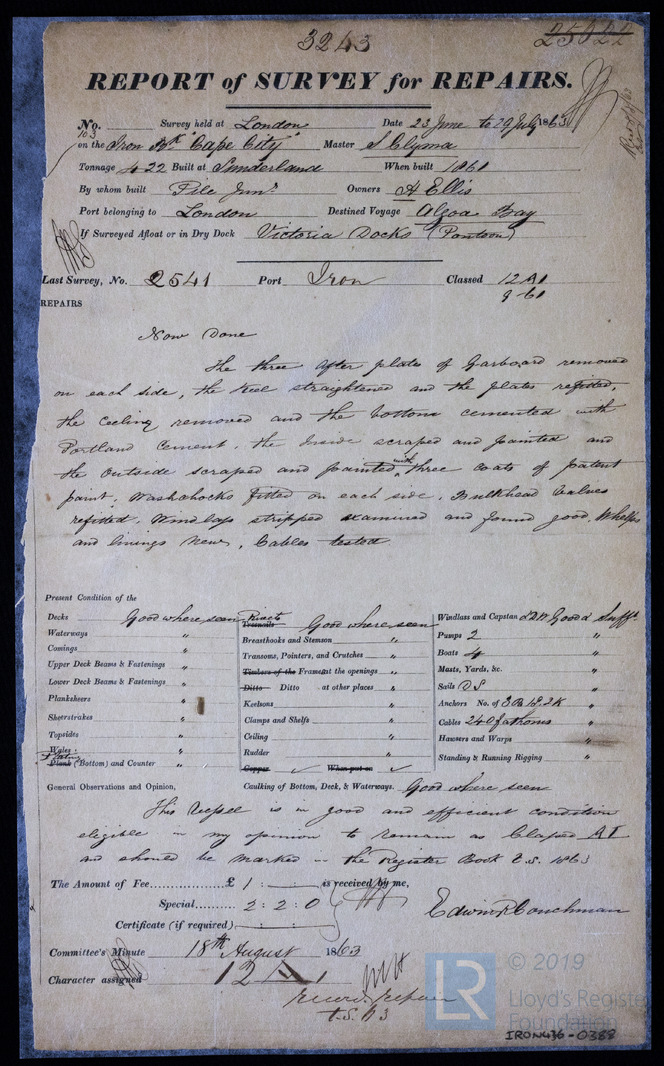 3243
25021
REPORT of SURVEY for REPAIRS.
No. 103 Survey held at London Date 23 June to 29 July 1863
on the Iron Bk "Cape City" Master S Clyma
Tonnage 422 Built at Sunderland When built 1860
By whom built Pile Junr. Owners H Ellis
Port belonging to London Destined Voyage Algoa Bay
If Surveyed Afloat or in Dry Dock Victoria Docks (Pontoon)
Last Survey, No. 2541 Port Iron Classed 12 A1
9-60
REPAIRS
Now Done
The three after plates of Garboard removed
on each side, the keel straightened and the plates refitted,
the ceeling removed and the bottom cemented with
Portland Cement, the Inside scraped and painted and
the Outside scraped and painted with three coats of patent
paint, Washchocks fitted on each side, Bulkhead Valves
refitted, Windlass stripped examined and found good, Whelps
and linings New, Cables tested
Present Condition of the
Decks Good where seen
Waterways "
Comings "
Upper Deck Beams & Fastenings "
Lower Deck Beams & Fastenings "
Planksheers "
Sheerstrakes "
Topsides "
Wales "
Plates Plank (Bottom) and Counter "
Rivets Treenails Good where seen
Breasthooks and Stemson "
Transoms, Pointers, and Crutches "
Timbers of the Frames at the openings "
Ditto Ditto at other places "
Keelsons "
Clamps and Shelfs "
Ceiling "
Rudder "
Copper ✓ When put on ✓
Windlass and Capstan Good & Sufft.
Pumps 2 "
Boats 4 "
Masts, Yards, &c. "
Sails D S "
Anchors No. of 3 B 1 S, 2 K "
Cables 240 fathoms "
Hawsers and Warps "
Standing & Running Rigging "
General Observations and Opinion, Caulking of Bottom, Deck, & Waterways. Good where seen
This Vessel is in good and efficient condition
eligible in my opinion to remain as Classed A1
and should be marked in the Register Book T.S. 1863
The Amount of Fee £ 1 : is received by me,
Special 2 : 2 : 0
Edwin R Couchman
Certificate (if required)
Committee's Minute 18th August 1863
Character assigned 12 A 1
Record Repair
T.S. 63
LR
© 2019
Lloyd's Register
Foundation
IRON436-0388